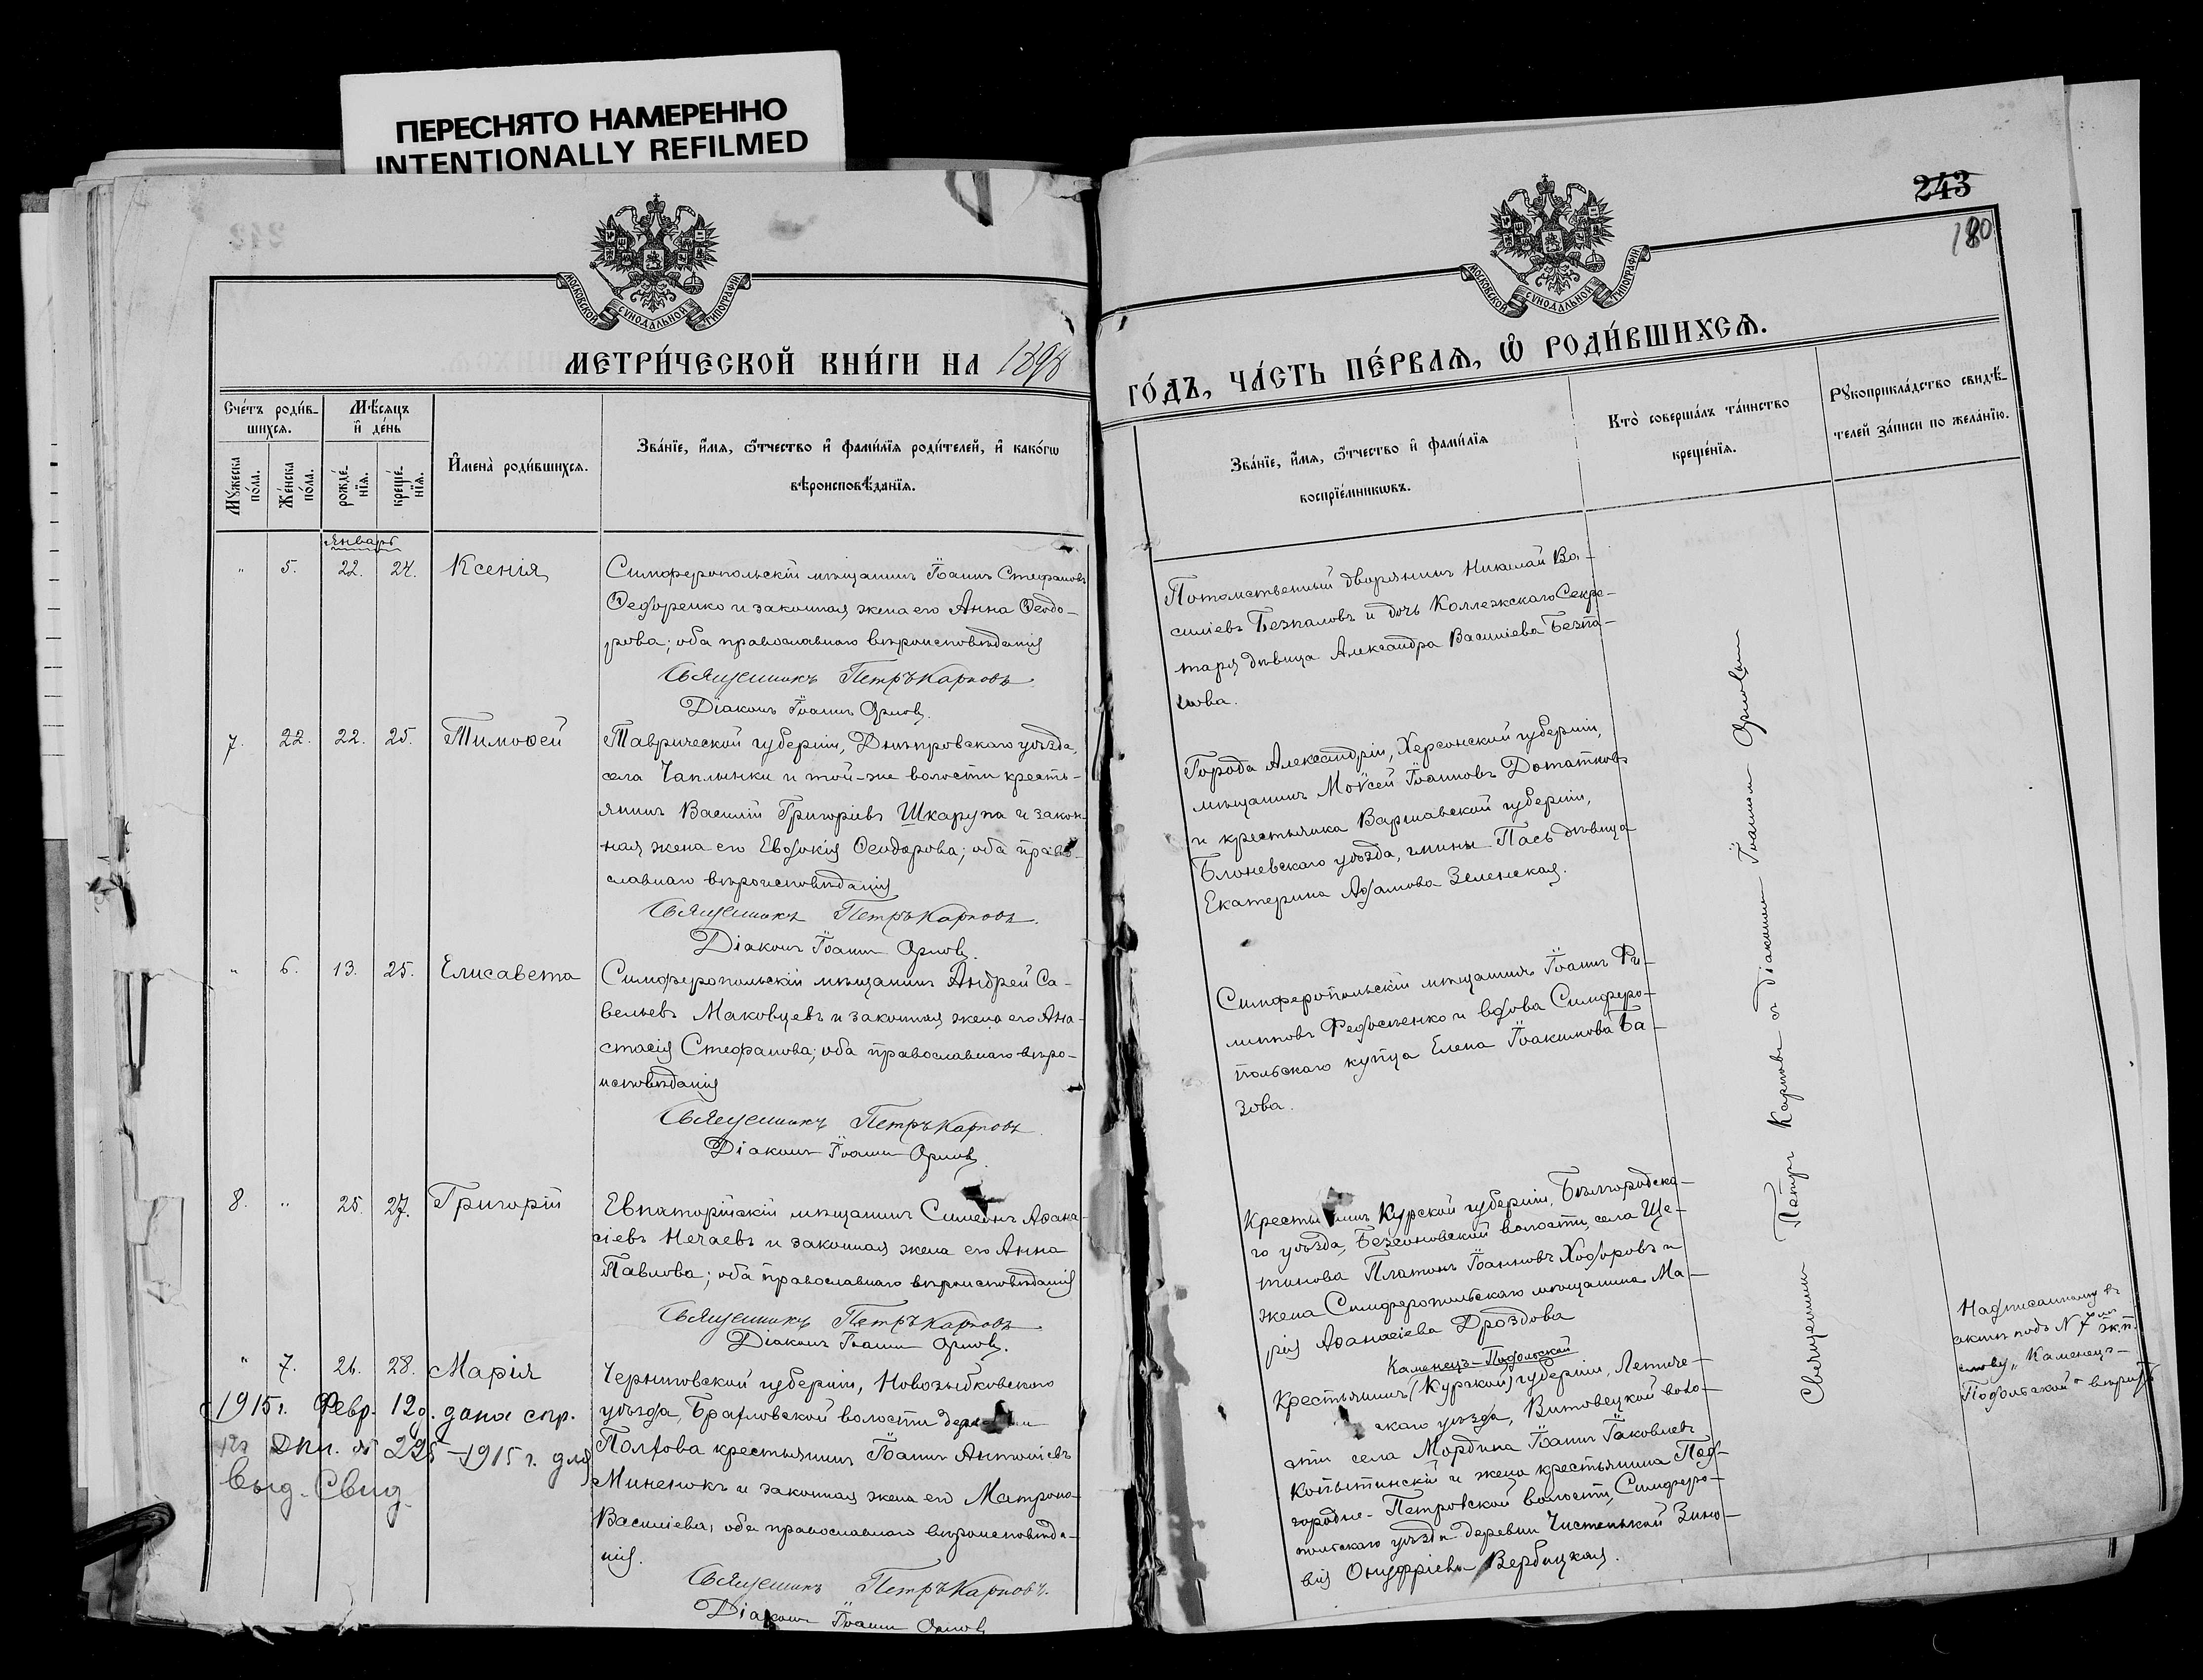 ПЕРЕСНЯТО НАМЕРЕННО
INTENTIONALLY REFILMED
МОСКОВСКОЙ СѴНОДАЛЬНОЙ ТИПОГРАФІИ
МЕТРИ́ЧЕСКОЙ КНИ́ГИ НА 1898
Сче́тъ роди́в-
шихся.
Мѣ́сяцъ
и де́нь
Мꙋ́жеска
по́ла.
Же́нска
по́ла.
рожде́-
нїя.
креще́-
нїя.
Имена̀ роди́вшихся.
Зва́нїе, и́мя, ѻ҆́тчество и фами́лїя роди́телей, и како́гѡ
вѣроисповѣ́данїя.
Январь
" 5. 22. 24. Ксенія
Симферопольскій мѣщанинъ Іоаннъ Стефановъ
Федоренко и законная жена его Анна Ѳеодо-
рова; оба православнаго вѣроисповѣданія
Священникъ Петръ Карповъ.
Діаконъ Іоаннъ Орловъ.
7. 22. 22. 25. Тимоѳей
Таврической губерніи, Днѣпровскаго уѣзда,
села Чаплынки и той-же волости кресть-
янинъ Василій Григоріевъ Шкарупа и закон-
ная жена его Евдокія Ѳеодорова; оба право-
славнаго вѣроисповѣданія
Священникъ Петръ Карповъ.
Діаконъ Іоаннъ Орловъ.
" 6. 13. 25. Елисавета
Симферопольскій мѣщанинъ Андрей Са-
вельевъ Маковцевъ и законная жена его Ана-
стасія Стефанова; оба православнаго вѣро-
исповѣданія
Священникъ Петръ Карповъ
Діаконъ Іоаннъ Орловъ.
8. " 25. 27. Григорій
Евпаторійскій мѣщанинъ Симеонъ Аѳана-
сіевъ Нечаевъ и законная жена его Анна
Павлова; оба православнаго вѣроисповѣданія
Священникъ Петръ Карповъ
Діаконъ Іоаннъ Орловъ.
" 7. 26. 28. Марія
Черниговской губерніи, Новозыбковскаго
уѣзда, Брахловской волости
крестьянинъ Іоаннъ Антоніевъ
Миненокъ и законная жена его Матрона
Василіева; оба православнаго вѣроисповѣда-
нія.
Священникъ Петръ Карповъ.
Діаконъ Іоаннъ Орловъ
1915г. Февр. 12д. дана спр.
225 - 1915 г. для
Выд. Свид.
243
180
МОСКОВСКОЙ СѴНОДАЛЬНОЙ ТИПОГРАФІИ
ГО́ДЪ, ЧА́СТЬ ПЕ́РВАЯ, Ѽ РОДИ́ВШИХСЯ.
Зва́нїе, и́мя, ѻ҆́тчество и фами́лїя
воспрїе́мникѡвъ.
Кто̀ соверша́лъ та́инство
креще́нїя.
Рꙋкоприкла́дство свидѣ́-
телей за́писи по жела́нїю.
Потомственный дворянинъ Николай Ва-
силіевъ Безпаловъ и дочь Коллежскаго Секре-
таря дѣвица Александра Василіева Безпа-
лова.
Города Александріи, Херсонской губерніи,
мѣщанинъ Моѵсей Іоанновъ
и крестьянка Варшавской губерніи,
Блоневскаго уѣзда, гмины Пасъ дѣвица
Екатерина Адамова Зеленская.
Симферопольскій мѣщанинъ Іоаннъ Фи-
липповъ Федосѣенко и вдова Симферо-
польскаго купца Елена Іоакимова Ба-
зова.
Курской губерніи, Бѣлгородска-
го уѣзда, Безсоновской волости, села Ще-
тинова Платонъ Іоанновъ Ходоровъ и
жена Симферопольскаго мѣщанина Ма-
рія Аѳанасіева Дроздова
Каменецъ-Подольской
Крестьянинъ (Курской) губерніи, Летиче-
скаго уѣзда, Витовецкой воло-
сти села Мордина Іоаннъ Іаковлевъ
Копытинскій и жена крестьянина Под-
городне-Петровской волости, Симферо-
польскаго уѣзда деревни Чистенькой Зино-
вія Онуфріева Вербицкая.
Священникъ Петръ Карповъ съ Діакономъ Іоанномъ Орловымъ
Надписанному въ
актѣ подъ N 7 жен.п.
слову „Каменецъ-
Подольской" вѣрить